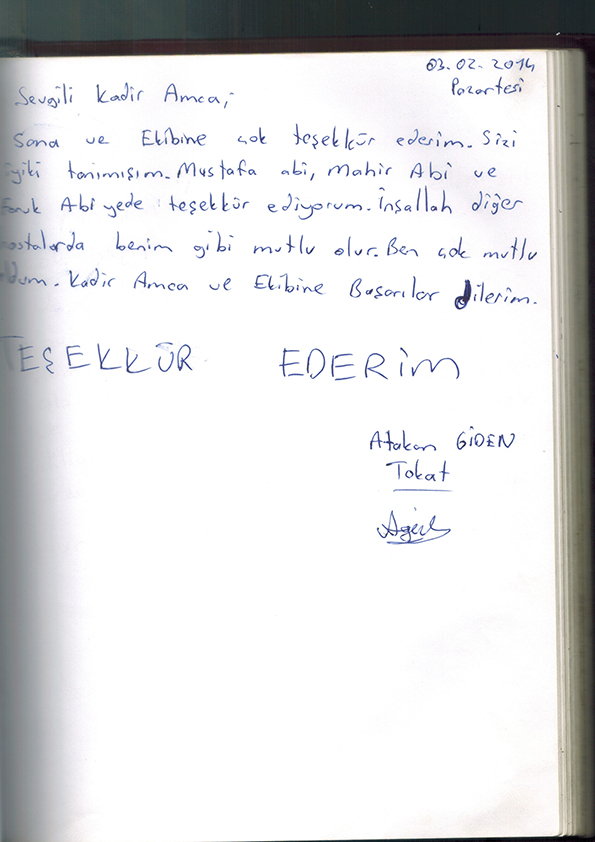 03.02.2014
Pazartesi
Sevgili Kadir Amca;
Sana ve Ekibine çok teşekkür ederim. Sizi
iyiki tanımışım. Mustafa abi, Mahir Abi ve
Faruk Abiyede teşekkür ediyorum. İnşallah diğer
hastalarda benim gibi mutlu olur. Ben çok mutlu
oldum. Kadir Amca ve Ekibine Başarılar dilerim.
TEŞEKKÜR EDERİM
Atakan GİDEN
Tokat